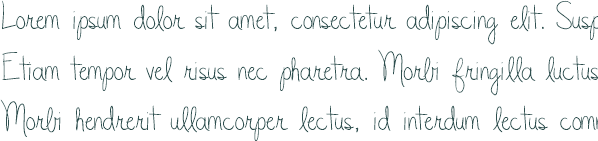 Lorem ipsum dolor sit amet, consectetur adipiscing elit. Susp
Etiam tempor vel risus nec pharetra. Morbi fringilla luctus
Morbi hendrerit ullamcorper lectus, id interdum lectus com